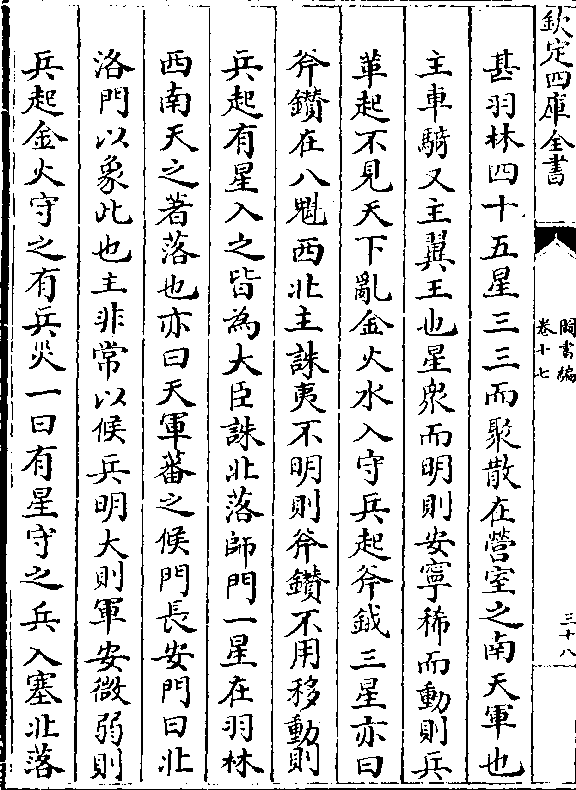 欽定四庫全書
圖書編
卷十七
三十八
甚羽林四十五星三三而聚散在營室之南天軍也
主車騎又主翼王也星衆而明則安寧稀而動則兵
革起不見天下亂金火水入守兵起斧鉞三星亦曰
斧鑕在八魁西北主誅夷不明則斧鑕不用移動則
兵起有星入之皆為大臣誅北落師門一星在羽林
西南天之著落也亦曰天軍蕃之候門長安門曰北
洛門以象此也主非常以候兵明大則軍安微弱則
兵起金火守之有兵災一曰有星守之兵入塞北落